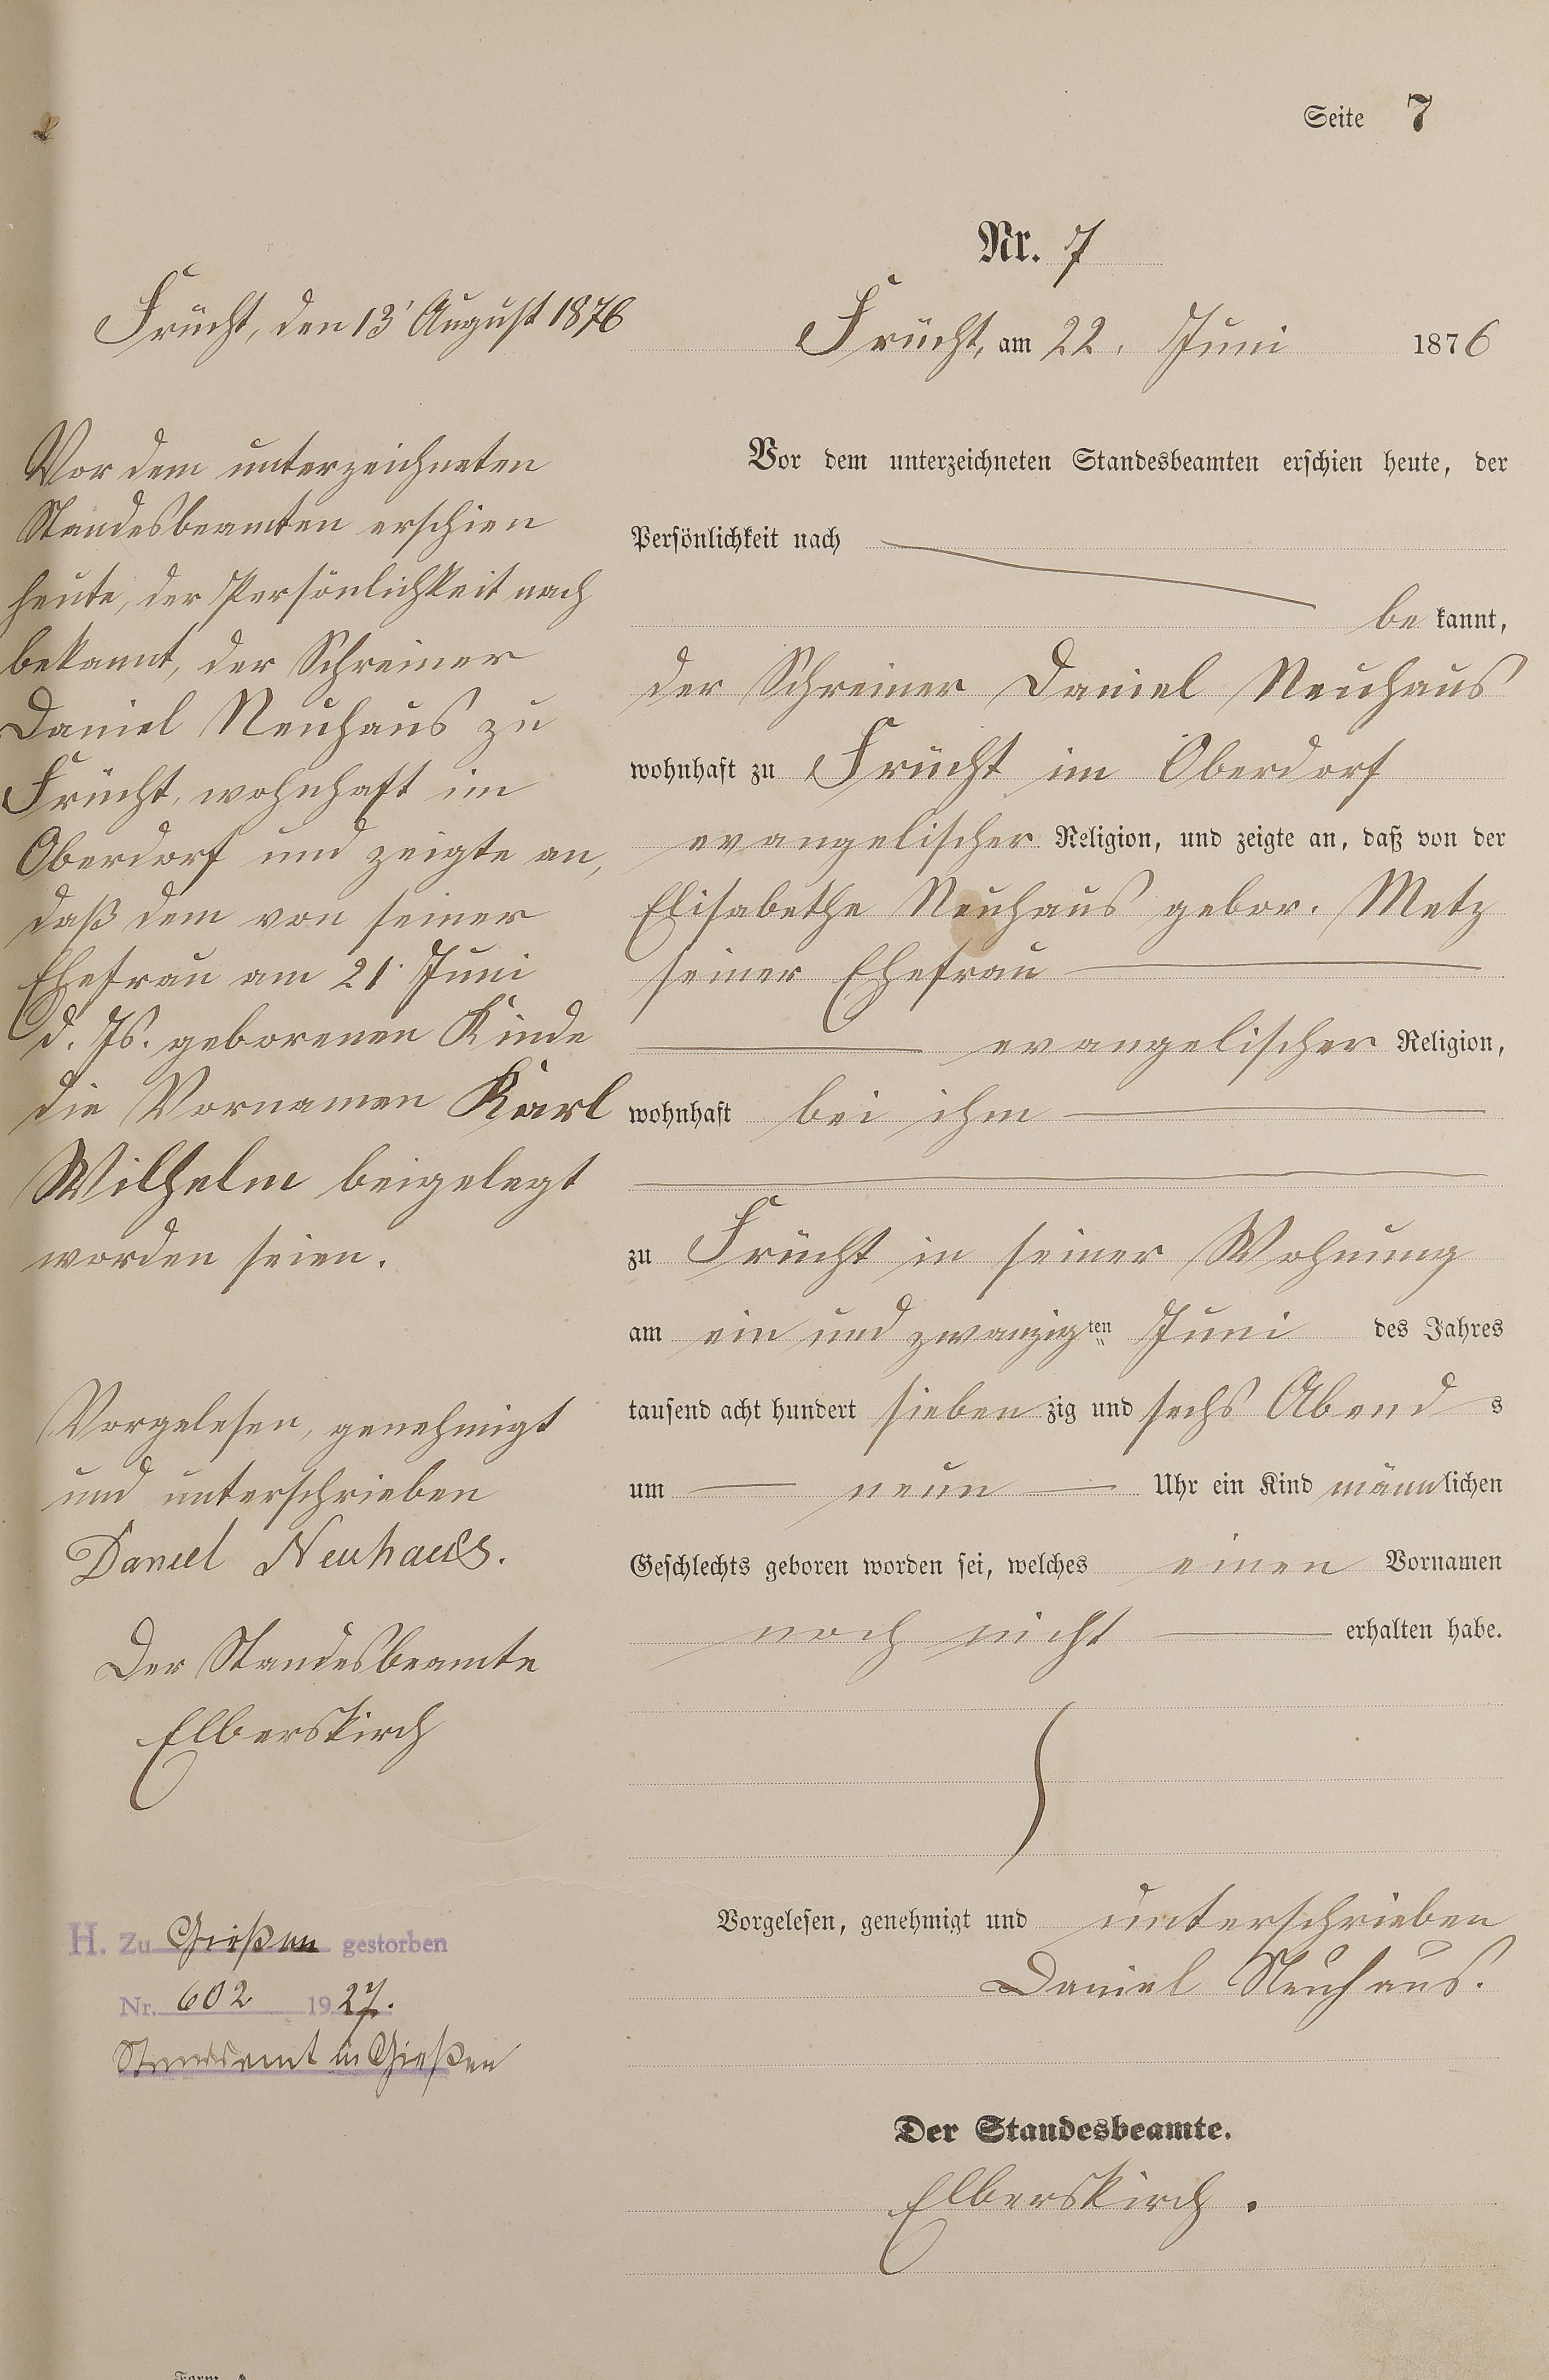 Seite 7
Nr. 7
Frücht, den 13' August 1876
Vor dem unterzeichneten
Standesbeamten erschien
heute, der Persönlichkeit nach
bekannt, der Schreiner
Daniel Neuhaus zu
Frücht, wohnhaft im
Oberdorf und zeigte an,
daß dem von seiner
Ehefrau am 21. Juni
d. Js. geborenen Kinde
die Vornamen Karl
Wilhelm beigelegt
worden seien.
Vorgelesen, genehmigt
und unterschrieben
Daniel Neuhaus.
Der Standesbeamte
Elberskirch
H. Zu Gießen gestorben
Nr. 602 1927.
Standesamt in Gießen
Frücht, am 22. Juni 1876
Vor dem unterzeichneten Standesbeamten erschien heute, der
Persönlichkeit nach
be kannt,
der Schreiner Daniel Neuhaus
wohnhaft zu Frücht im Oberdorf
evangelischer Religion, und zeigte an, daß von der
Elisabethe Neuhaus gebor. Metz
seiner Ehefrau
evangelischer Religion,
wohnhaft bei ihm
zu Frücht in seiner Wohnung
am ein und zwanzigten Juni des Jahres
tausend acht hundert siebenzig und sechs Abends
um neun Uhr ein Kind männlichen
Geschlechts geboren worden sei, welches einen Vornamen
noch nicht erhalten habe.
Vorgelesen, genehmigt und unterschrieben
Daniel Neuhaus.
Der Standesbeamte.
Elberskirch.